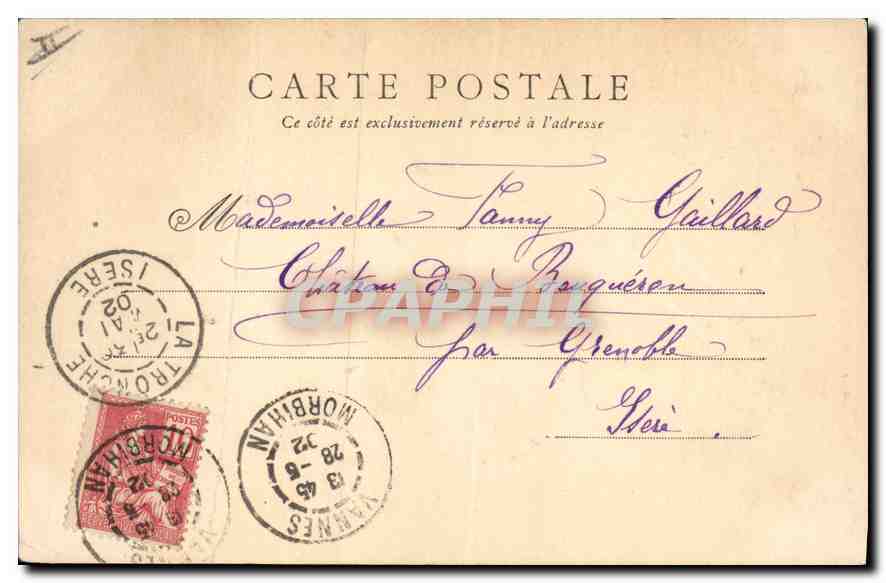 CARTE POSTALE
Ce côté est exclusivement réservé à l'adresse
Mademoiselle Fanny Gaillard
Château de Bouquéron
par Grenoble
Isère.
CPAPHIL
LA TRONCHE
ISERE
MAI
02
VANNES
MORBIHAN
13 45
28 -5
02
POSTES
10
VANNES
MORBIHAN
13 45
28
02